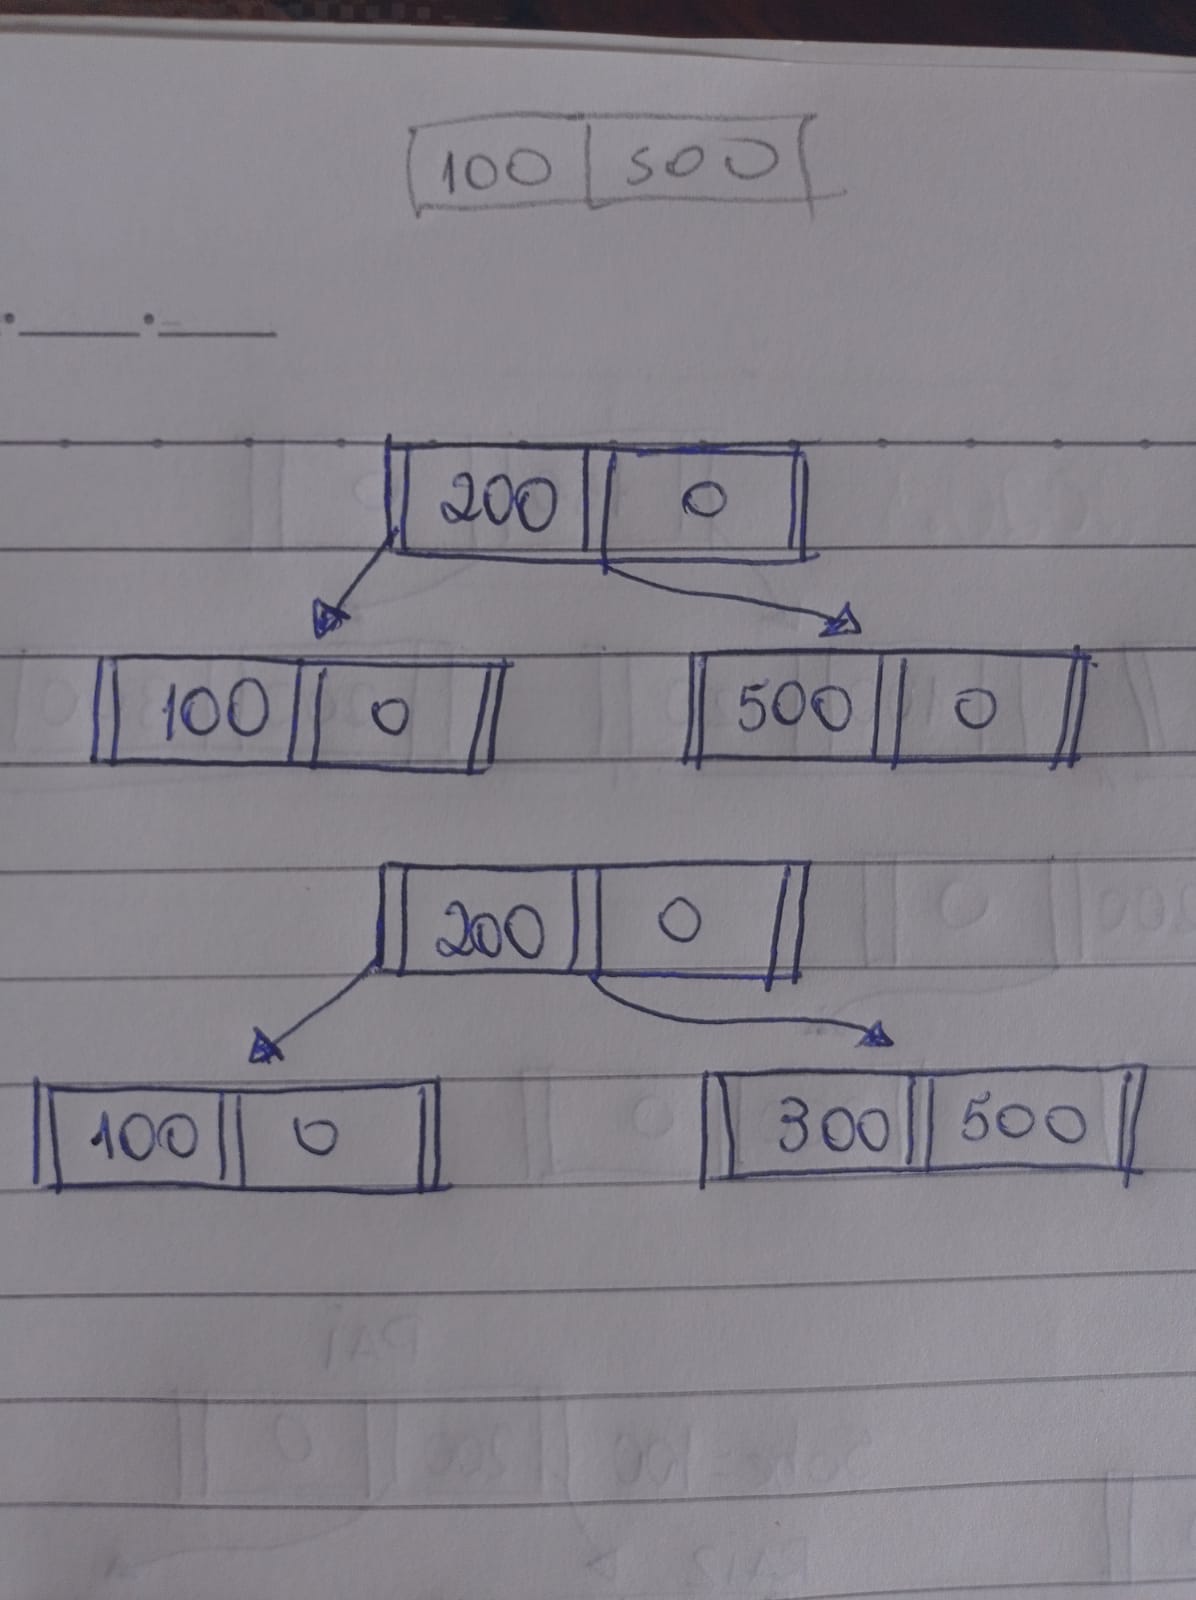 100 500
200 0
100 0 500 0
200 0
100 0 300 500